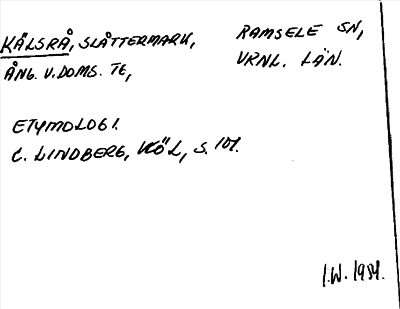 KÄLSRÅ, SLÅTTERMARK, RAMSELE SN,
ÅNG. V. DOMS. TE, VRNL. LÄN.
ETYMOLOGI.
C. LINDBERG, KÖL, S. 101.
I.W. 1984.